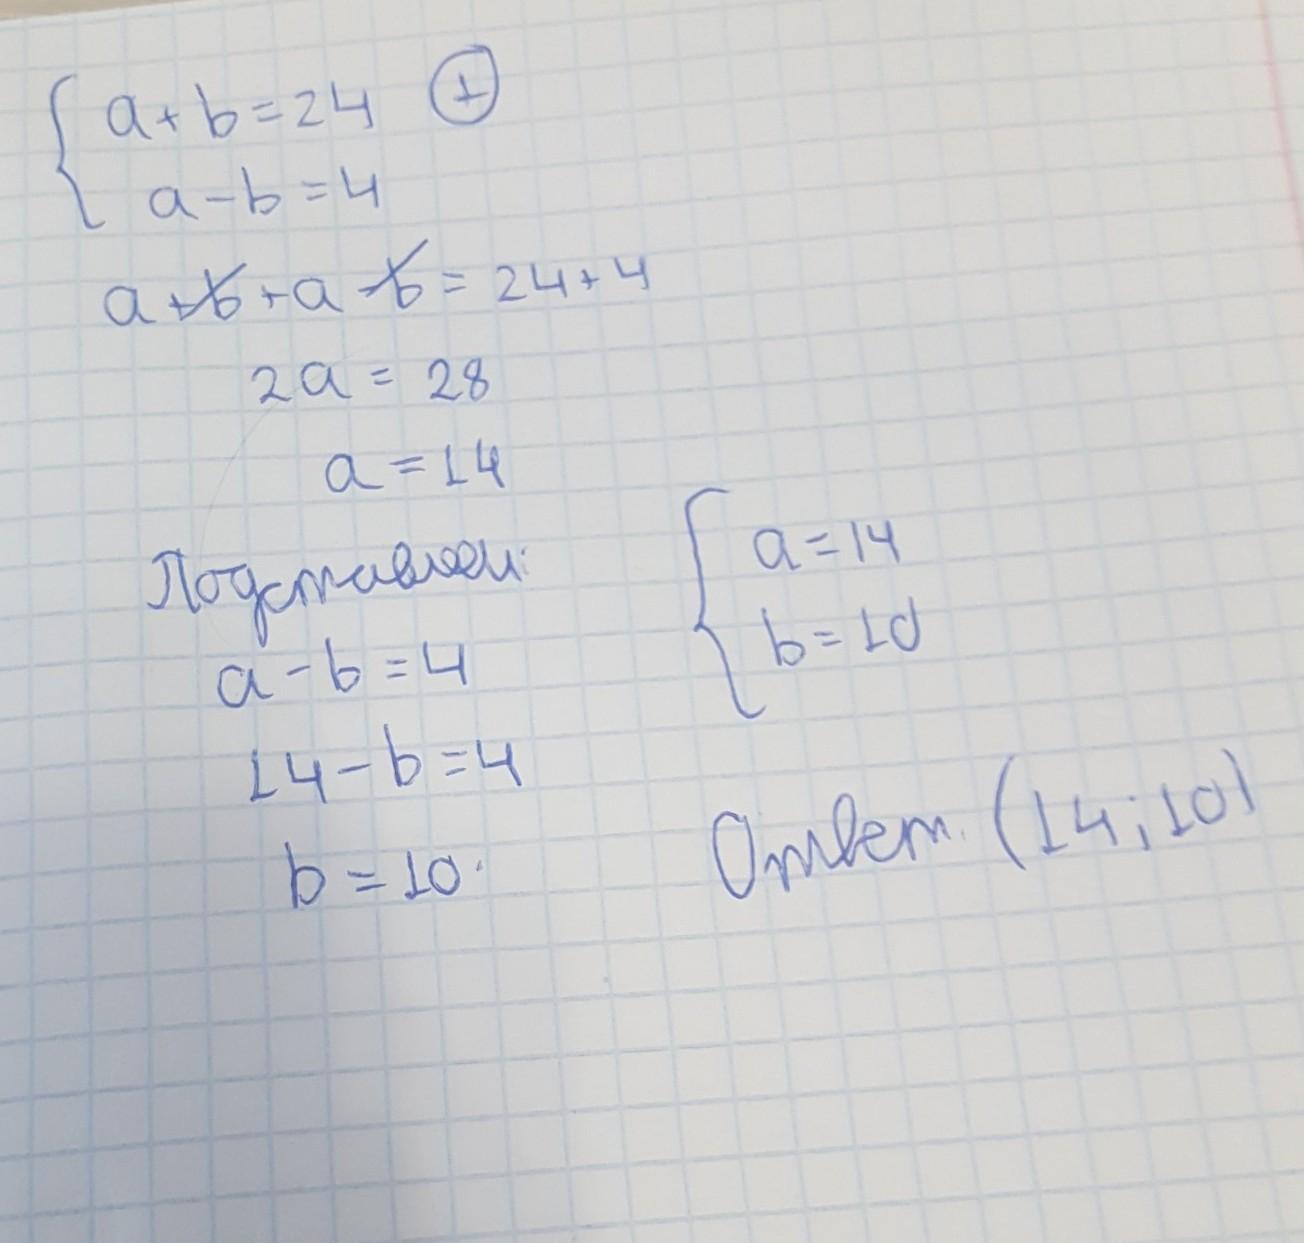 a+b=24 (+)
a-b=4
a+b+a-b=24+4
2a=28
a=14
Подставляем:
a-b=4
14-b=4
b=10.
a=14
b=10
Ответ. (14;10)